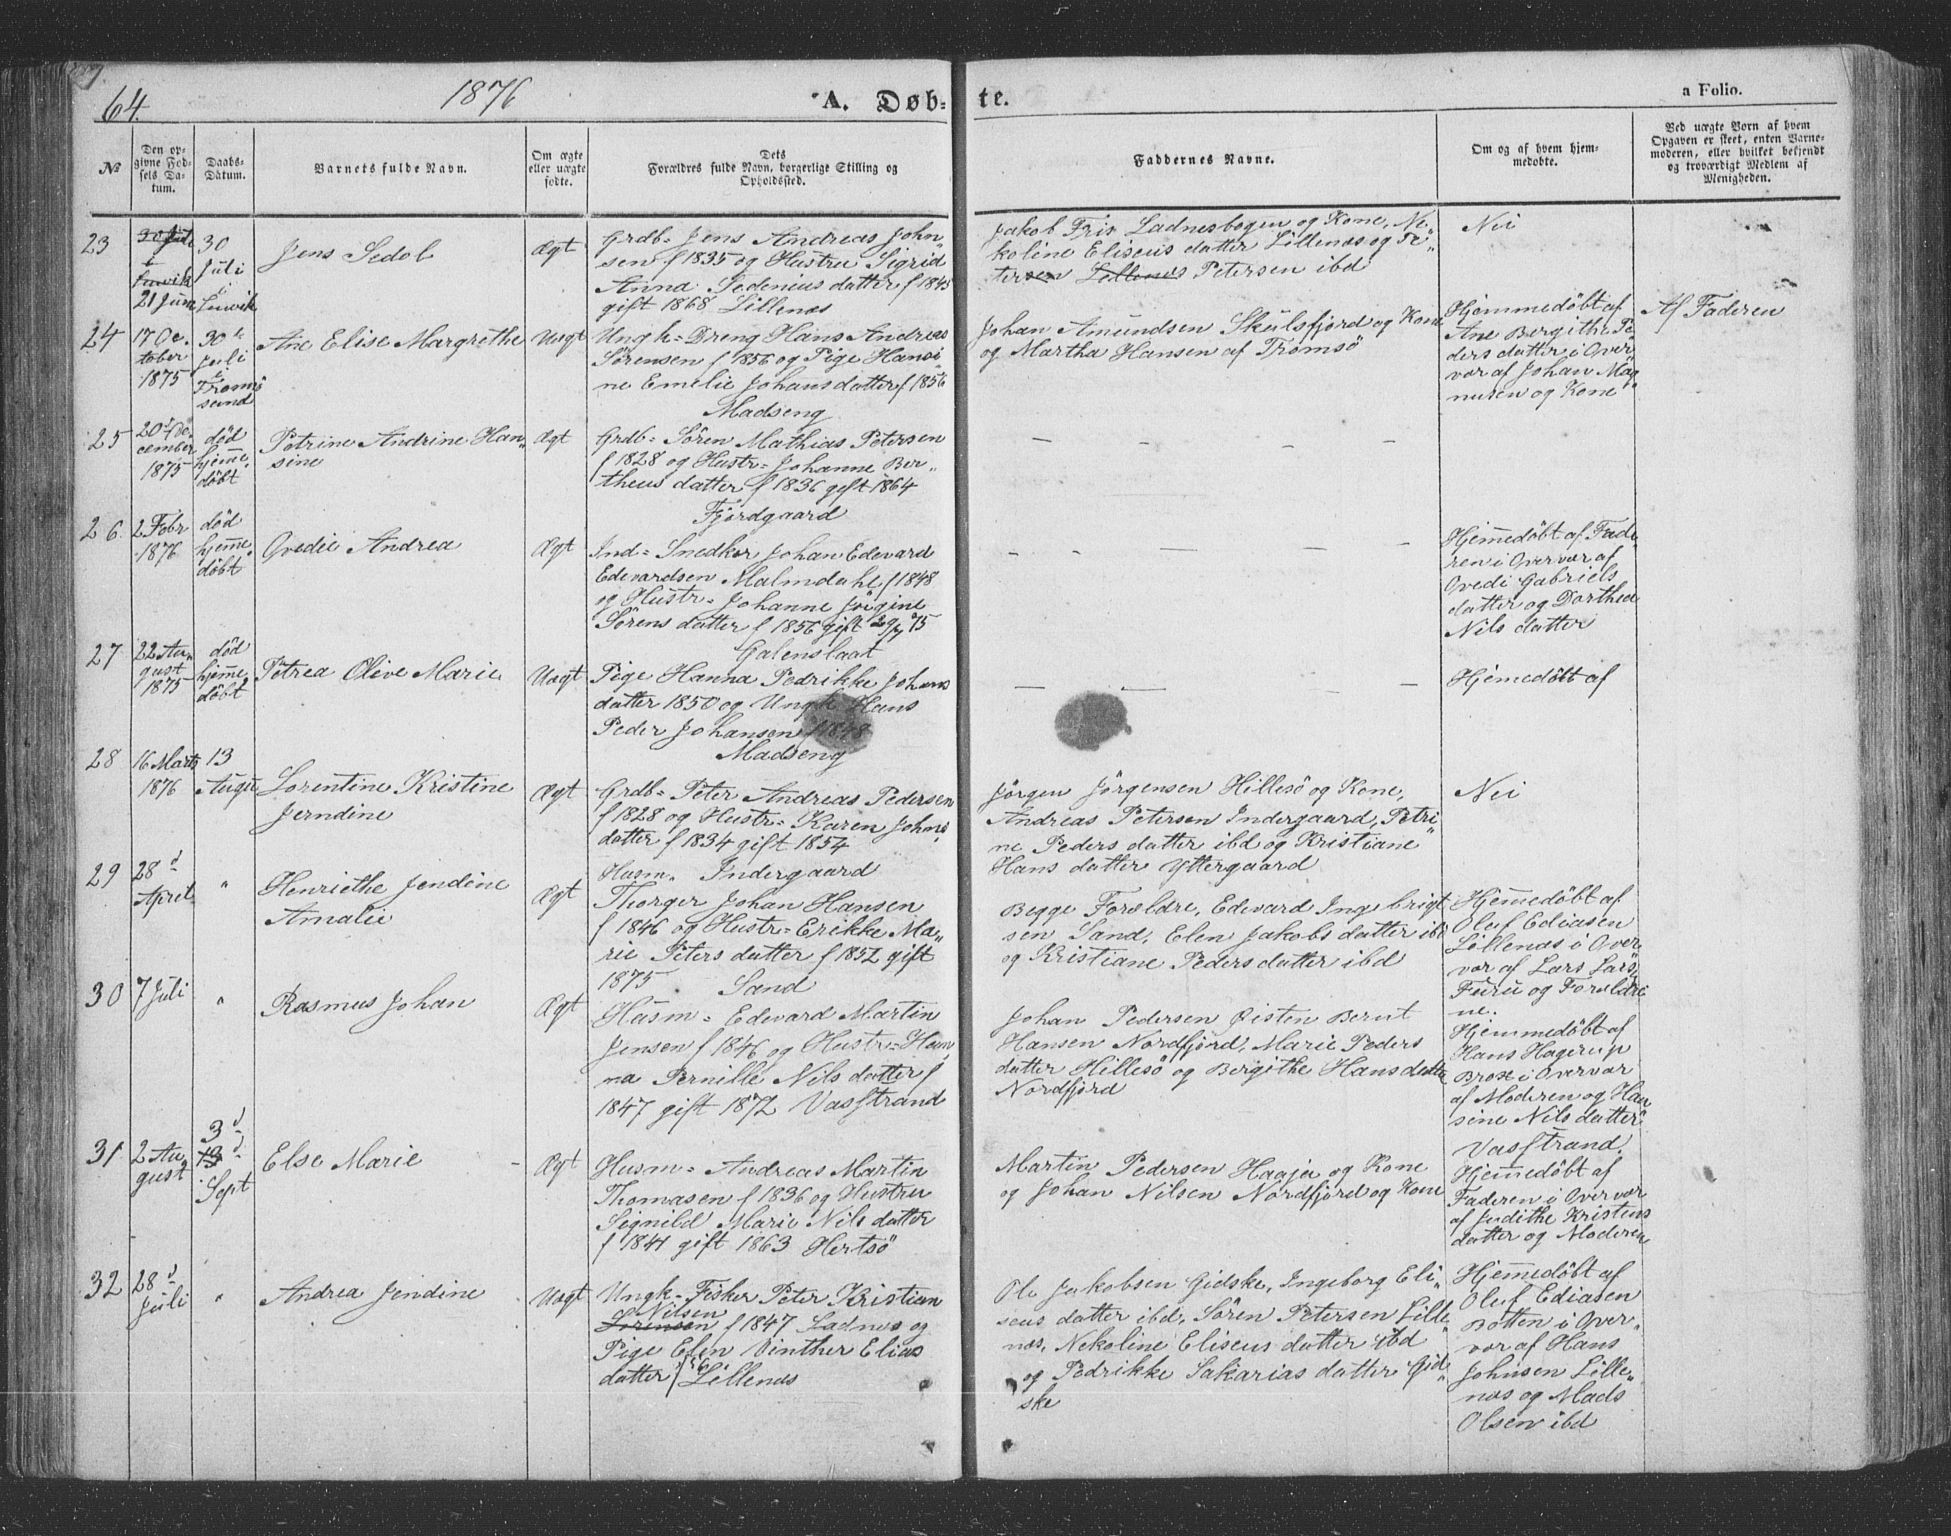 64.
1876
A. Døb=
te.
a Folio.
№
Den op-
givne Fød-
sels Da-
tum.
Daabs-
Datum.
Barnets fulde Navn.
Om ægte
eller uægte
fødte.
Dets
Forældres fulde Navn, borgerlige Stilling og
Opholdssted.
Faddernes Navne.
Om og af hvem hjem-
medøbte.
Ved uægte Born af hvem
Opgaven er skeet, enten Barne-
moderen, eller hvilket bekjendt
og troværdigt Medlem af
Menigheden.
23
21 Juni
30
Juli
Jens Sedol
Ægt
Grdb= Jens Andreas John„
sen f 1835 og Hustru Sigrid
Anna Sedenius datter f 1845
gift 1868 Lillenæs
Jakob Friis Ladnesbogen og Kone, Ne„
koline Eliseus datter Lillenæs og Pe„
tersen Lillenæs Petersen ibd
Nei
24
17 Oc.
tober
1875
30te
Juli
i
Tromsö
sund
Ane Elise Margrethe
Uægt
Ungk= Dreng Hans Andreas
Sörensen f 1856 og Pige Hansi
ne Emelie Johansdatter f 1856
Madseng
Johan Amundsen Skulsfjord og Kone
og Martha Hansen af Tromsö
Hjemmedöbt af
Ane Bergithe Pe
ders datter i Over
vær af Johan Mag
nusen og Kone
Af Faderen
25
20de De.
cember
1875
död
hjeme.
döbt
Petrine Andrine Han„
sine
Ægt
Grdb= Sören Mathias Petersen
f 1828 og Hustr= Johanne Ber„
theus datter f 1836 gift 1864
Fjordgaard
26.
2 Febr
1876
död
hjeme
döbt
Ovedie Andrea
Ægt
Ind= Snedker Johan Edevard
Edevardsen Malmdahl f 1848
og Hustr= Johanne Jörgine
Sörens datter f 1856 gift 29/7 75
Galenslaat
Hjemedöbt af Fade
ren i Overvær af
Ovedi Gabriels
datter og Dorthea
Nils datter
27
22 Au„
gust
1875
död
hjeme
döbt
Petrea Olive Marie
Uægt
Pige Hanna Pedrikke Johans
datter 1850 og Ungk Hans
Peder Johansen f 1848
Madseng
Hjemedöbt af
28
16 Marts
1876
13
August
Lorentine Kristine
Jerndine
Ægt
Grdb= Peter Andreas Pedersen
f 1828 og Hustr= Karen Johns
datter f 1834 gift 1854
Indergaard
Jörgen Jörgensen Hillesö og Kone,
Andreas Petersen Indergaard, Petri„
ne Peders datter ibd og Kristiane
Hans datter Yttergaard
Nei
29
28d
April
"
Henriethe Jendine
Amalie
Ægt
Husm.
Thorger Johan Hansen
f 1846 og Hustr= Erikke Ma„
rie Peters datter f 1852 gift
1875 Sand
Begge Foreldre, Edevard Ingebrigt
sen Sand, Elen Jakobs datter ibd
og Kristiane Peders datter ibd
Hjemedöbt af
Oluf Ediasen
Lillenæs i Over
vær af Lars Lars
Furu og Foreldre
ne.
30
7 Juli
"
Rasmus Johan
Ægt
Husm= Edevard Martin
Jensen f 1846 og Hustr= Han
na Pernille Nils datter f
1847 gift 1872 Vasstrand
Johan Pedersen Øisten Bernt
Hansen Nordfjord, Marie Peders
datter Hillesö og Bergithe Hansdatter
Nordfjord
Hjemmedöbt af
Hans Hagerup
Brox i Overvær
af Moderen og Han
sine Nils datter
Vasstrand.
31
2 Au„
gust
3d
13d
Sept
Else Marie
Ægt
Husm= Andreas Martin
Thomasen f 1836 og Hustru
Signild Marie Nils datter
f 1841 gift 1863 Hertsö
Martin Pedersen Haaja og Kone
og Johan Nilsen Nordfjord og Kone
Hjemedöbt af
Faderen i Overvær
af Judithe Kristens
datter og Moderen
32
28d
Juli
"
Andrea Jendine
Uægt
Ungk= Fisker Peter Kristian
Nilsen
Sörensen f 1847 Ladnes og
Pige Elen Vinther Elias
datter f 56 Lillenæs
Ole Jakobsen Gidske, Ingeborg Eli„
seus datter ibd, Sören Petersen Lille„
næs, Nekoline Eliseus datter ibd
og Pedrikke Sakarias datter Gid„
ske
Hjemedöbt af
Oluf Ediasen
Botten i Over„
vær af Hans
Johnsen Lille„
næs og Mads
Olsen ibd